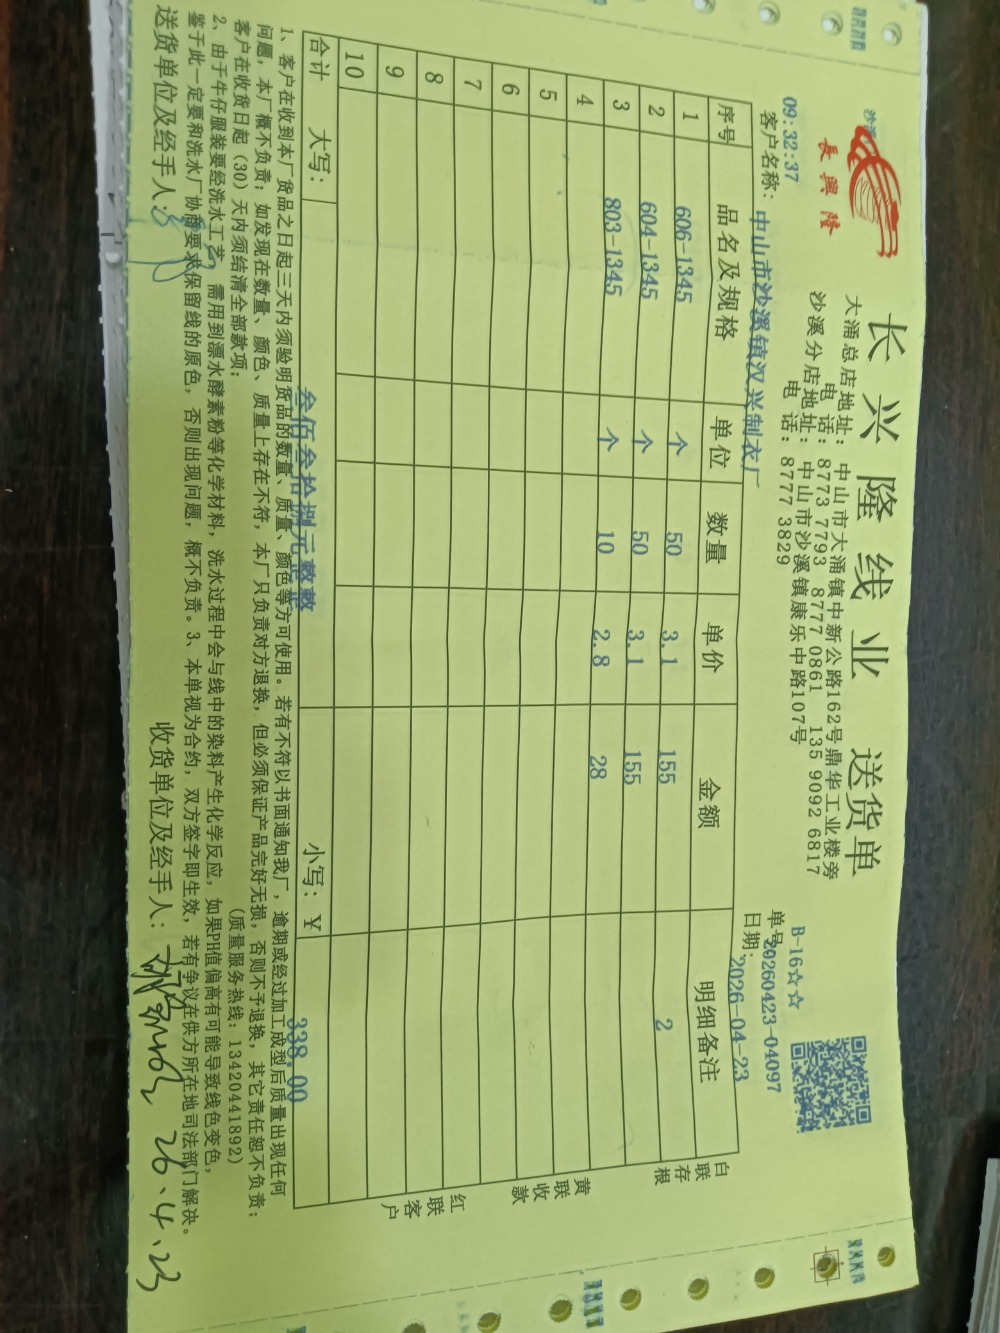 長興隆
长兴隆线业 送货单
大涌总店地址: 中山市大涌镇中新公路162号鼎华工业楼旁
电 话: 8773 7793 8777 0861 135 9092 6817
沙溪分店地址: 中山市沙溪镇康乐中路107号
电 话: 8777 3829
B-16☆☆
09:32:37
单号: 20260423-04097
客户名称: 中山市沙溪镇汉兴制衣厂
日期: 2026-04-23
序号 品名及规格 单位 数量 单价 金额 明细备注
1 606-1345 个 50 3.1 155 2
2 604-1345 个 50 3.1 155
3 803-1345 个 10 2.8 28
4
5
6
7
8
9
10
合计 大写: 叁佰叁拾捌元整 小写: ¥ 338.00
白联存根
黄联收款
红联客户
1、客户在收到本厂货品之日起三天内须验明货品的数量、质量、颜色等方可使用。若有不符以书面通知我厂, 逾期或经过加工成型后质量出现任何
问题, 本厂概不负责; 如发现在数量、颜色、质量上存在不符, 本厂只负责对方退换, 但必须保证产品完好无损, 否则不予退换, 其它责任恕不负责;
客户在收货日起(30)天内须结清全部款项; (质量服务热线: 13420441892)
2、由于牛仔服装要经洗水工艺, 需用到漂水酵素粉等化学材料, 洗水过程中会与线中的染料产生化学反应, 如果PH值偏高有可能导致线色变色,
鉴于此一定要和洗水厂协商要求保留线的原色, 否则出现问题, 概不负责。3、本单视为合约, 双方签字即生效, 若有争议在供方所在地司法部门解决。
送货单位及经手人: 收货单位及经手人: 26.4.23